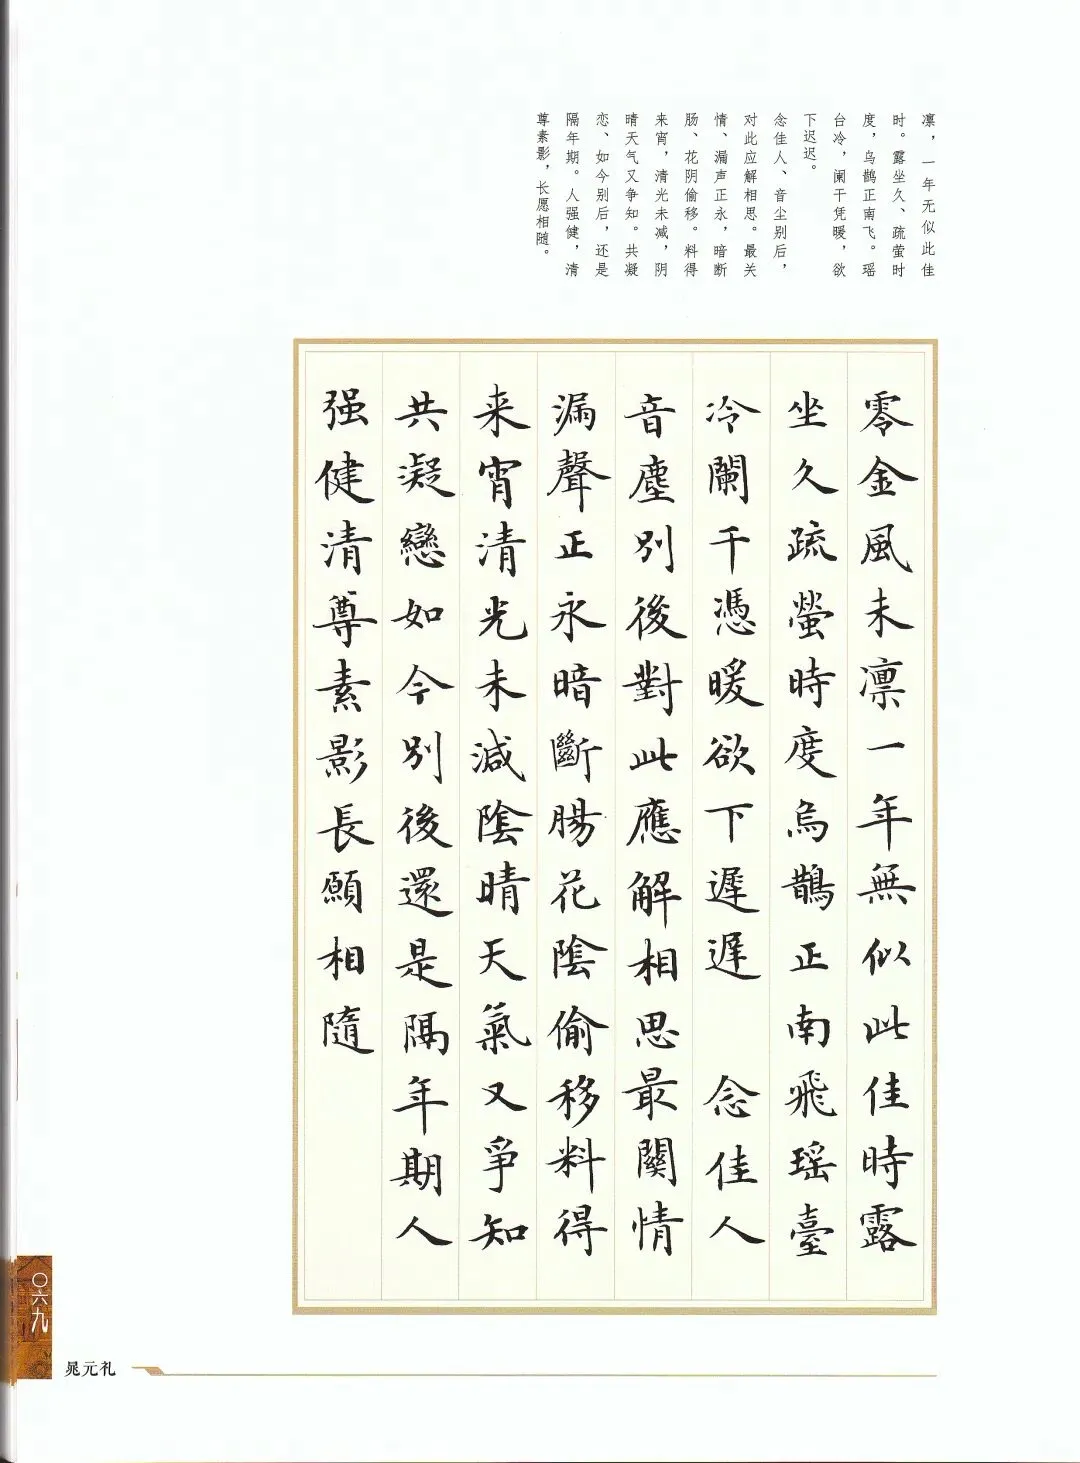 凛，一年无似此佳
时。露坐久、疏萤时
度，乌鹊正南飞。瑶
台冷，阑干凭暖，欲
下迟迟。
念佳人、音尘别后，
对此应解相思。最关
情、漏声正永，暗断
肠、花阴偷移。料得
来宵，清光未减，阴
晴天气又争知。共凝
恋、如今别后，还是
隔年期。人强健，清
尊素影，长愿相随。
零金風未凛一年無似此佳時露
坐久疏螢時度烏鵲正南飛瑶臺
冷闌干憑暖欲下遲遲 念佳人
音塵別後對此應解相思最關情
漏聲正永暗斷腸花陰偷移料得
来宵清光未減陰晴天氣又爭知
共凝戀如今別後還是隔年期人
强健清尊素影長願相隨
〇六九
晁元礼